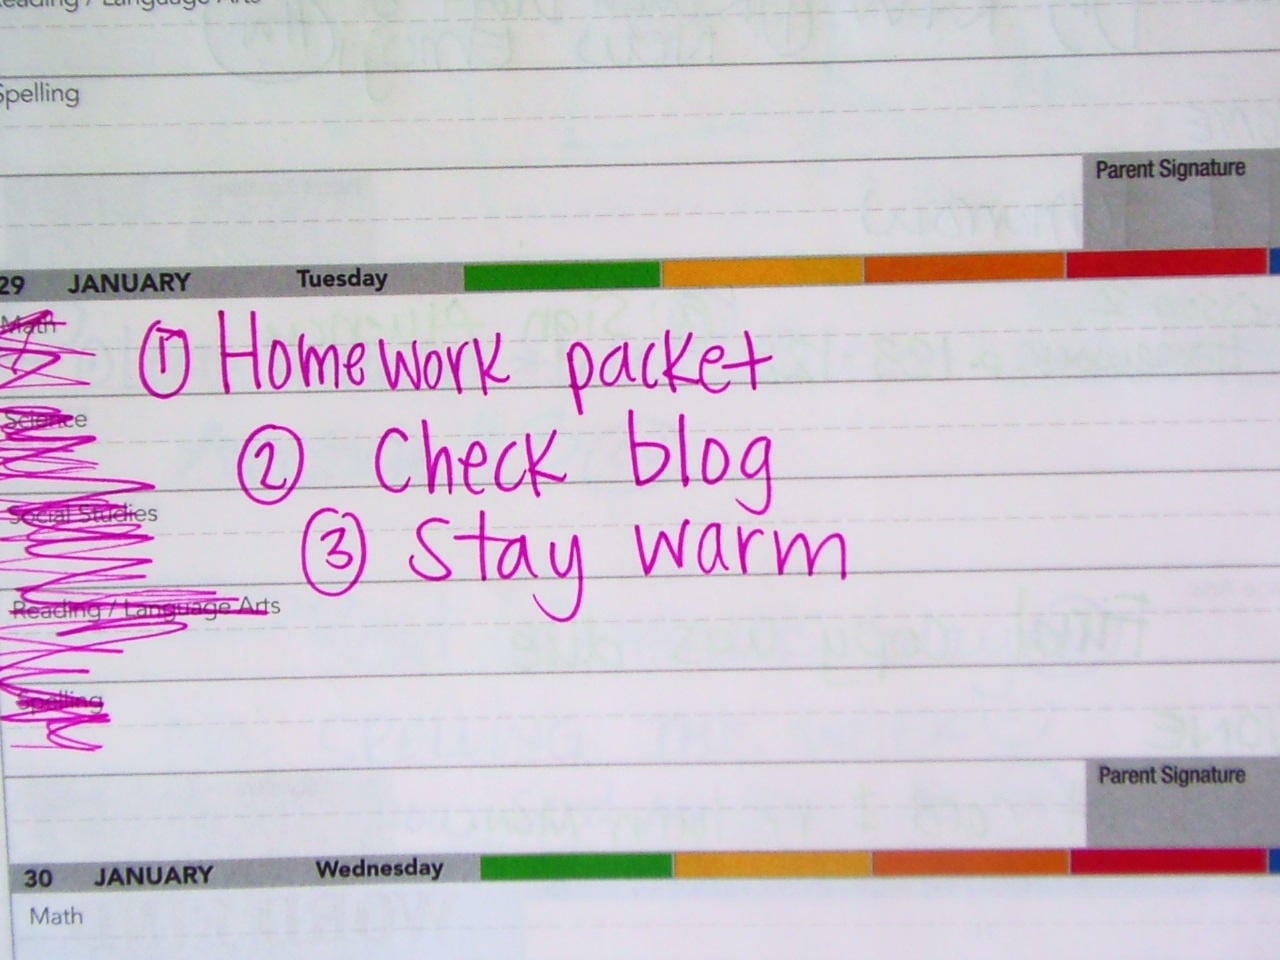 Spelling
Parent Signature
29 JANUARY Tuesday
Math
① Homework packet
Science
② Check blog
Social Studies
③ Stay warm
Reading / Language Arts
Spelling
Parent Signature
30 JANUARY Wednesday
Math